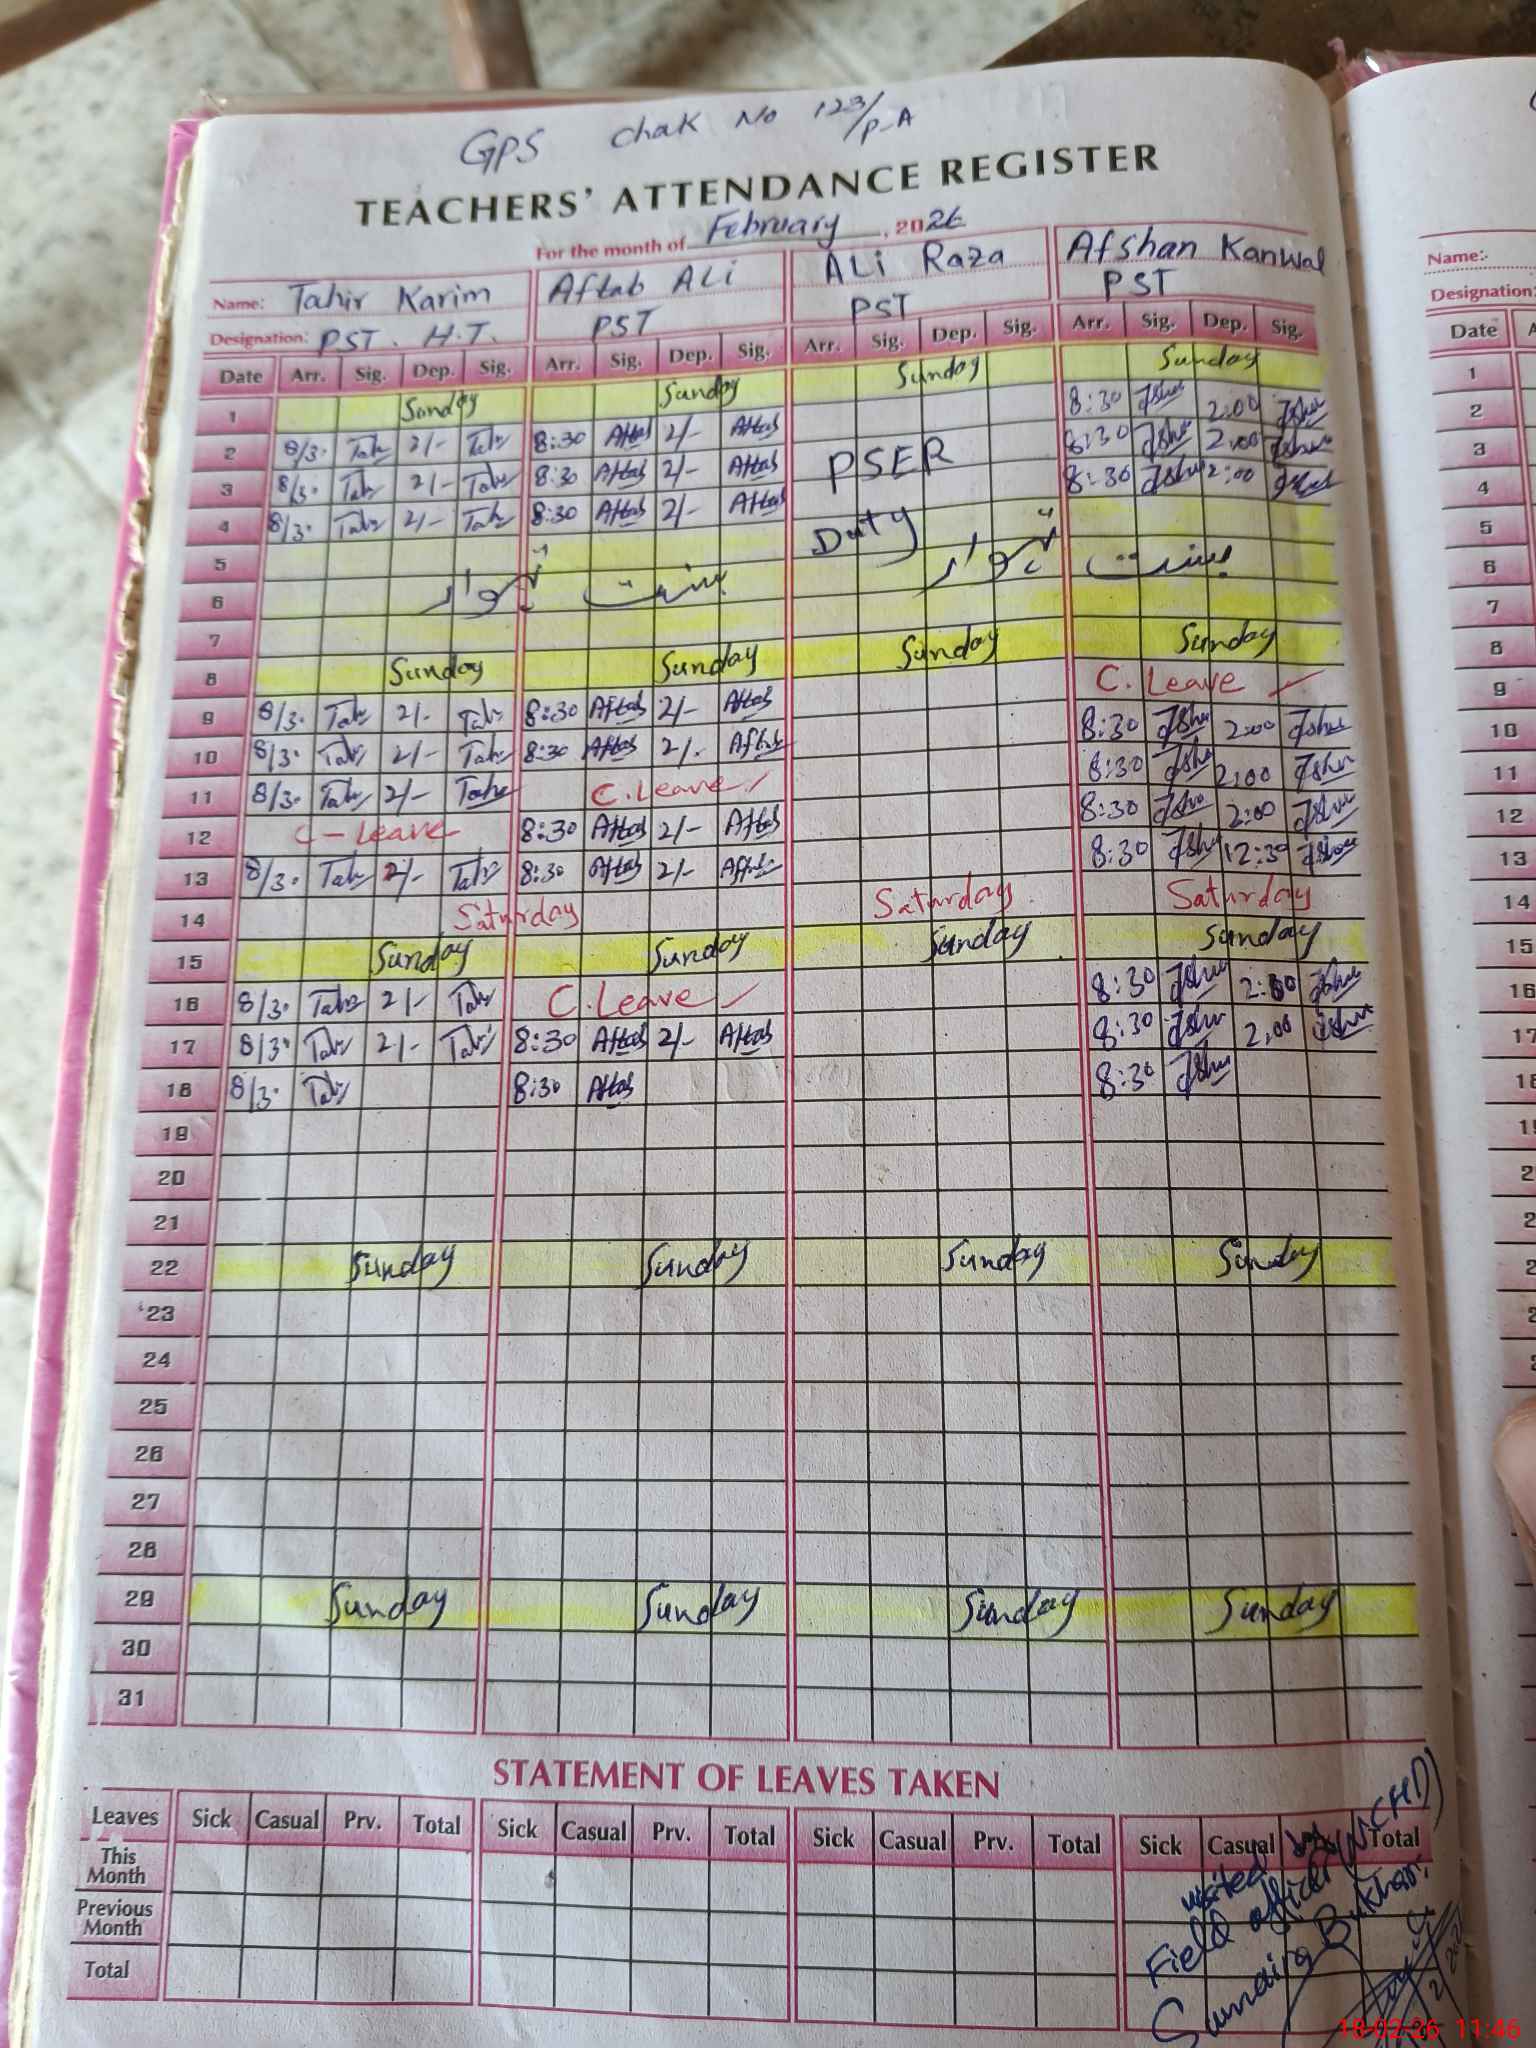 GPS Chak No 123/P-A
TEACHERS' ATTENDANCE REGISTER
For the month of February, 2026
Name: Tahir Karim Aftab ALi ALi Raza Afshan Kanwal
Designation: PST. H.T. PST PST PST
Date Arr. Sig. Dep. Sig. Arr. Sig. Dep. Sig. Arr. Sig. Dep. Sig. Arr. Sig. Dep. Sig.
1 Sunday Sunday Sunday Sunday
2 8/3. Tahir 2/- Tahir 8:30 Aftab 2/- Aftab 8:30 2:00
3 8/3. Tahir 2/- Tahir 8:30 Aftab 2/- Aftab PSER 8:30 2:00
4 8/3. Tahir 2/- Tahir 8:30 Aftab 2/- Aftab Duty 8:30 2:00
5
6 بسنت
7
8 Sunday Sunday Sunday Sunday
9 8/3. Tahir 2/- Tahir 8:30 Aftab 2/- Aftab C. Leave
10 8/3. Tahir 2/- Tahir 8:30 Aftab 2/. Aftab 8:30 2:00
11 8/3. Tahir 2/- Tahir C. Leave 8:30 2:00
12 C-Leave 8:30 Aftab 2/- Aftab 8:30 2:00
13 8/3. Tahir 2/- Tahir 8:30 Aftab 2/- Aftab 8:30 12:30
14 Saturday Saturday Saturday
15 Sunday Sunday Sunday Sunday
16 8/3. Tahir 2/- Tahir C. Leave 8:30 2:00
17 8/3. Tahir 2/- Tahir 8:30 Aftab 2/- Aftab 8:30 2,00
18 8/3. Tahir 8:30 Aftab 8:30
19
20
21
22 Sunday Sunday Sunday Sunday
23
24
25
26
27
28
29 Sunday Sunday Sunday Sunday
30
31
STATEMENT OF LEAVES TAKEN
Leaves Sick Casual Prv. Total Sick Casual Prv. Total Sick Casual Prv. Total Sick Casual Total
This Month
Previous Month
Total
visited by
Field officer (NCHD)
Sumaira Bukhari
Name:-
Designation:
Date
1
2
3
4
5
6
7
8
9
10
11
12
13
14
15
16
17
18-02-26 11:46